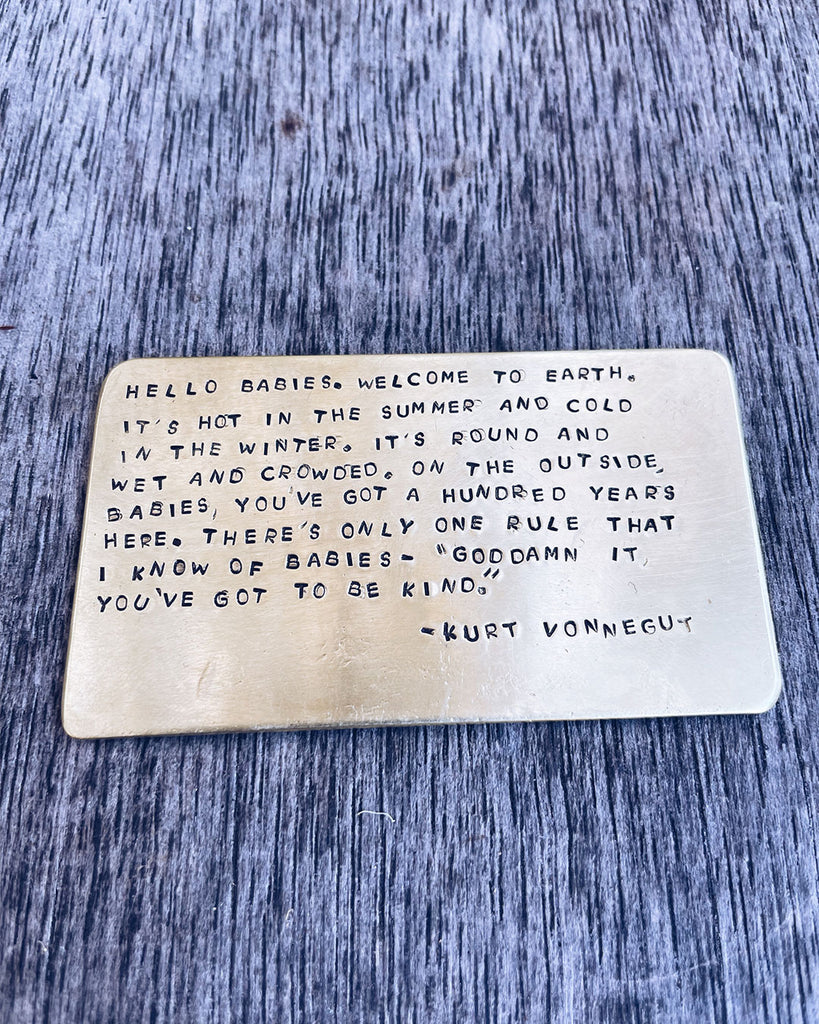 HELLO BABIES. WELCOME TO EARTH.
IT'S HOT IN THE SUMMER AND COLD
IN THE WINTER. IT'S ROUND AND
WET AND CROWDED. ON THE OUTSIDE,
BABIES, YOU'VE GOT A HUNDRED YEARS
HERE. THERE'S ONLY ONE RULE THAT
I KNOW OF BABIES- "GODDAMN IT,
YOU'VE GOT TO BE KIND."
-KURT VONNEGUT